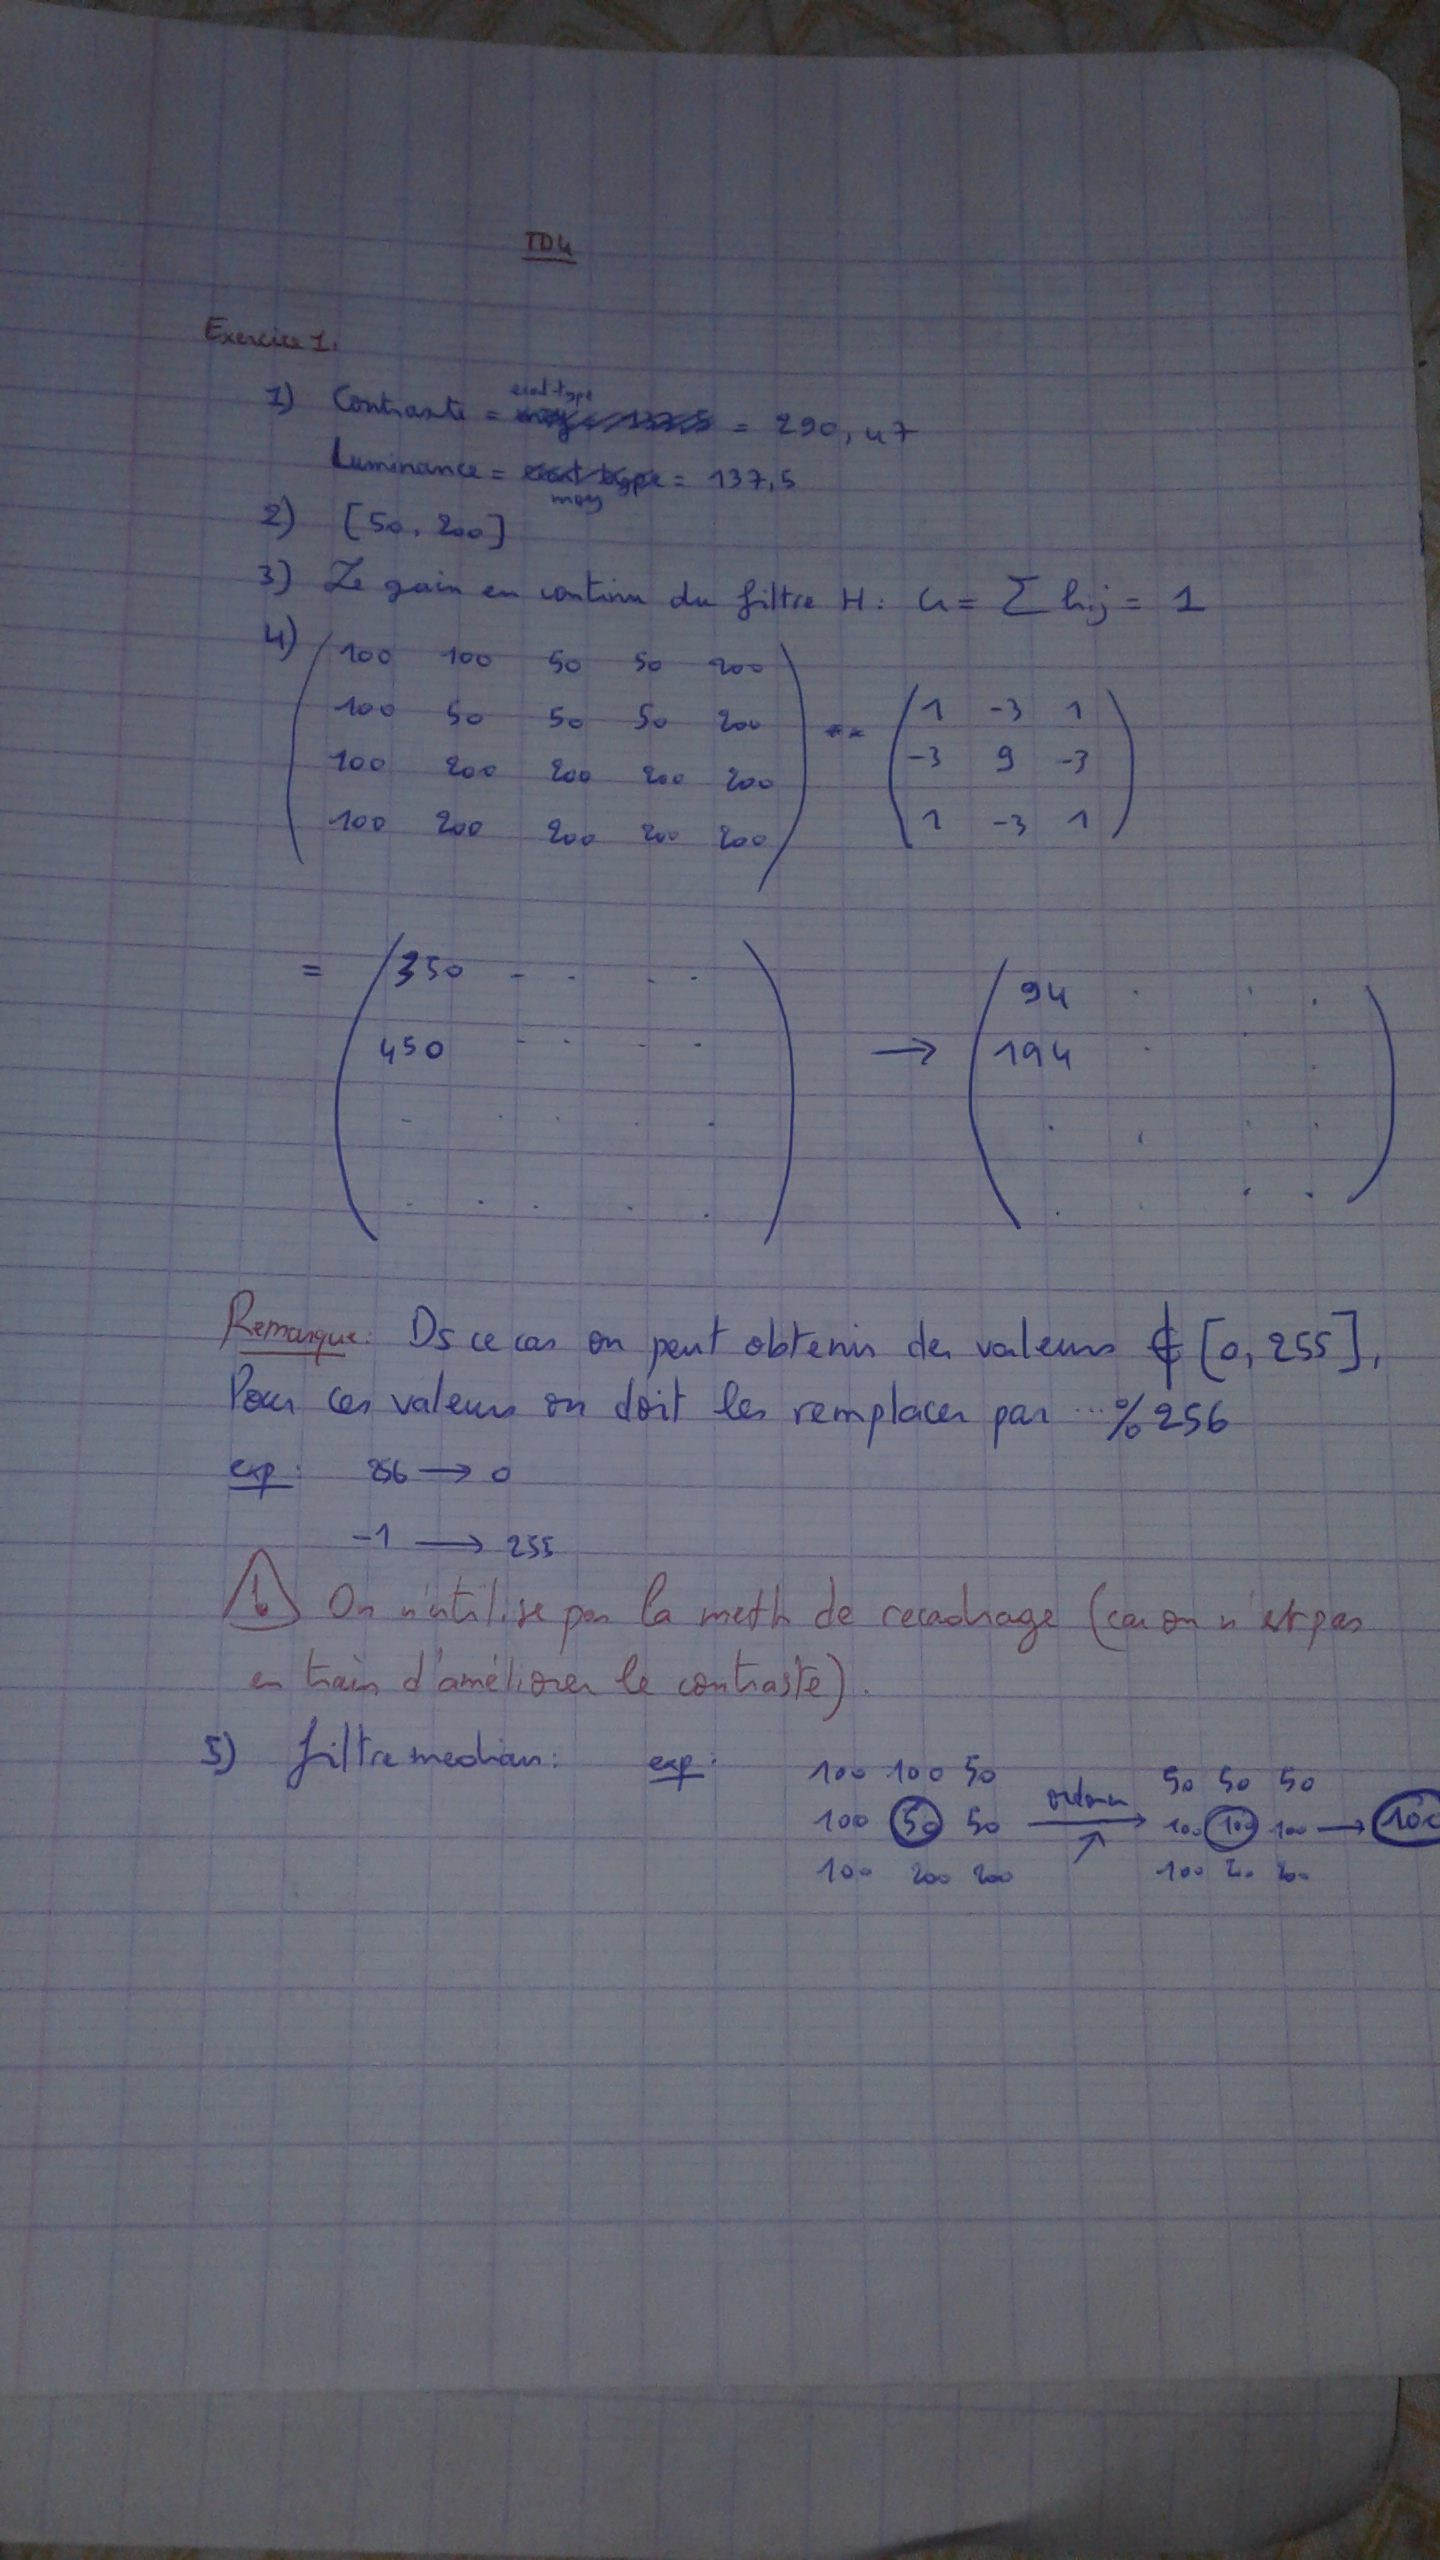 TD4
Exercice 1.
1) Contraste = ecart-type = 290,47
Luminance = moy = 137,5
2) [50, 200]
3) Le gain en continu du filtre H: G = Σ hij = 1
4) 100 100 50 50 200
100 50 50 50 200 ** 1 -3 1
100 200 200 200 200 -3 9 -3
100 200 200 200 200 1 -3 1
= 350 - - - - 94 . . .
450 - - - - → 194 . .
Remarque: Ds ce cas on peut obtenir des valeurs ∉ [0, 255],
Pour ces valeurs on doit les remplacer par ...%256
exp: 256 → 0
-1 → 255
! On n'utilise pas la meth de recadrage (car on n'est pas
en train d'améliorer le contraste).
5) filtre median: exp: 100 100 50 50 50 50
100 50 50 → 100 100 100 → 100
100 200 200 100 200 200